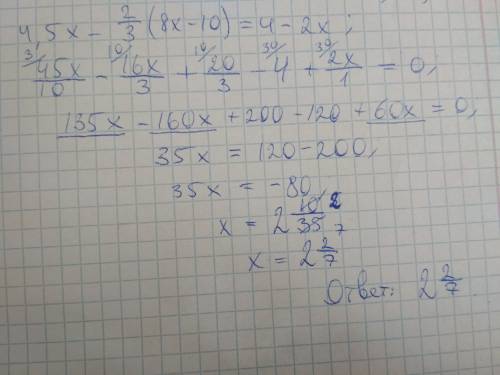 4,5x - 2/3 (8x-10) = 4 - 2x;
3/ 45x/10 - 10/ 16x/3 + 10/ 20/3 - 30/ 4 + 30/ 2x/1 = 0;
135x - 160x + 200 - 120 + 60x = 0,
35x = 120 - 200,
35x = -80,
x = 2 10/35 2 7
x = 2 2/7
Ответ: 2 2/7.